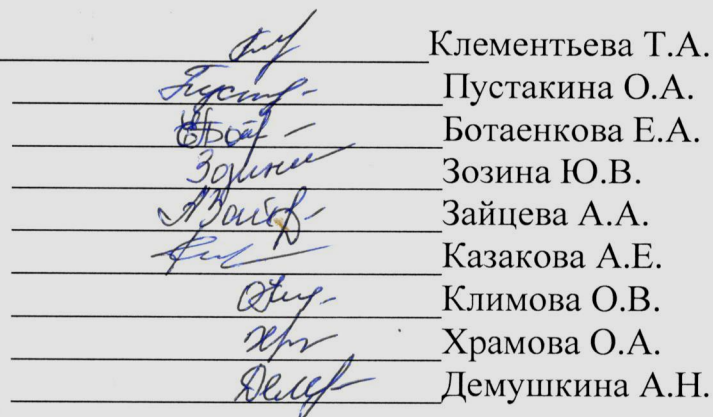 Клементьева Т.А.
Пустакина О.А.
Ботаенкова Е.А.
Зозина Ю.В.
Зайцева А.А.
Казакова А.Е.
Климова О.В.
Храмова О.А.
Демушкина А.Н.